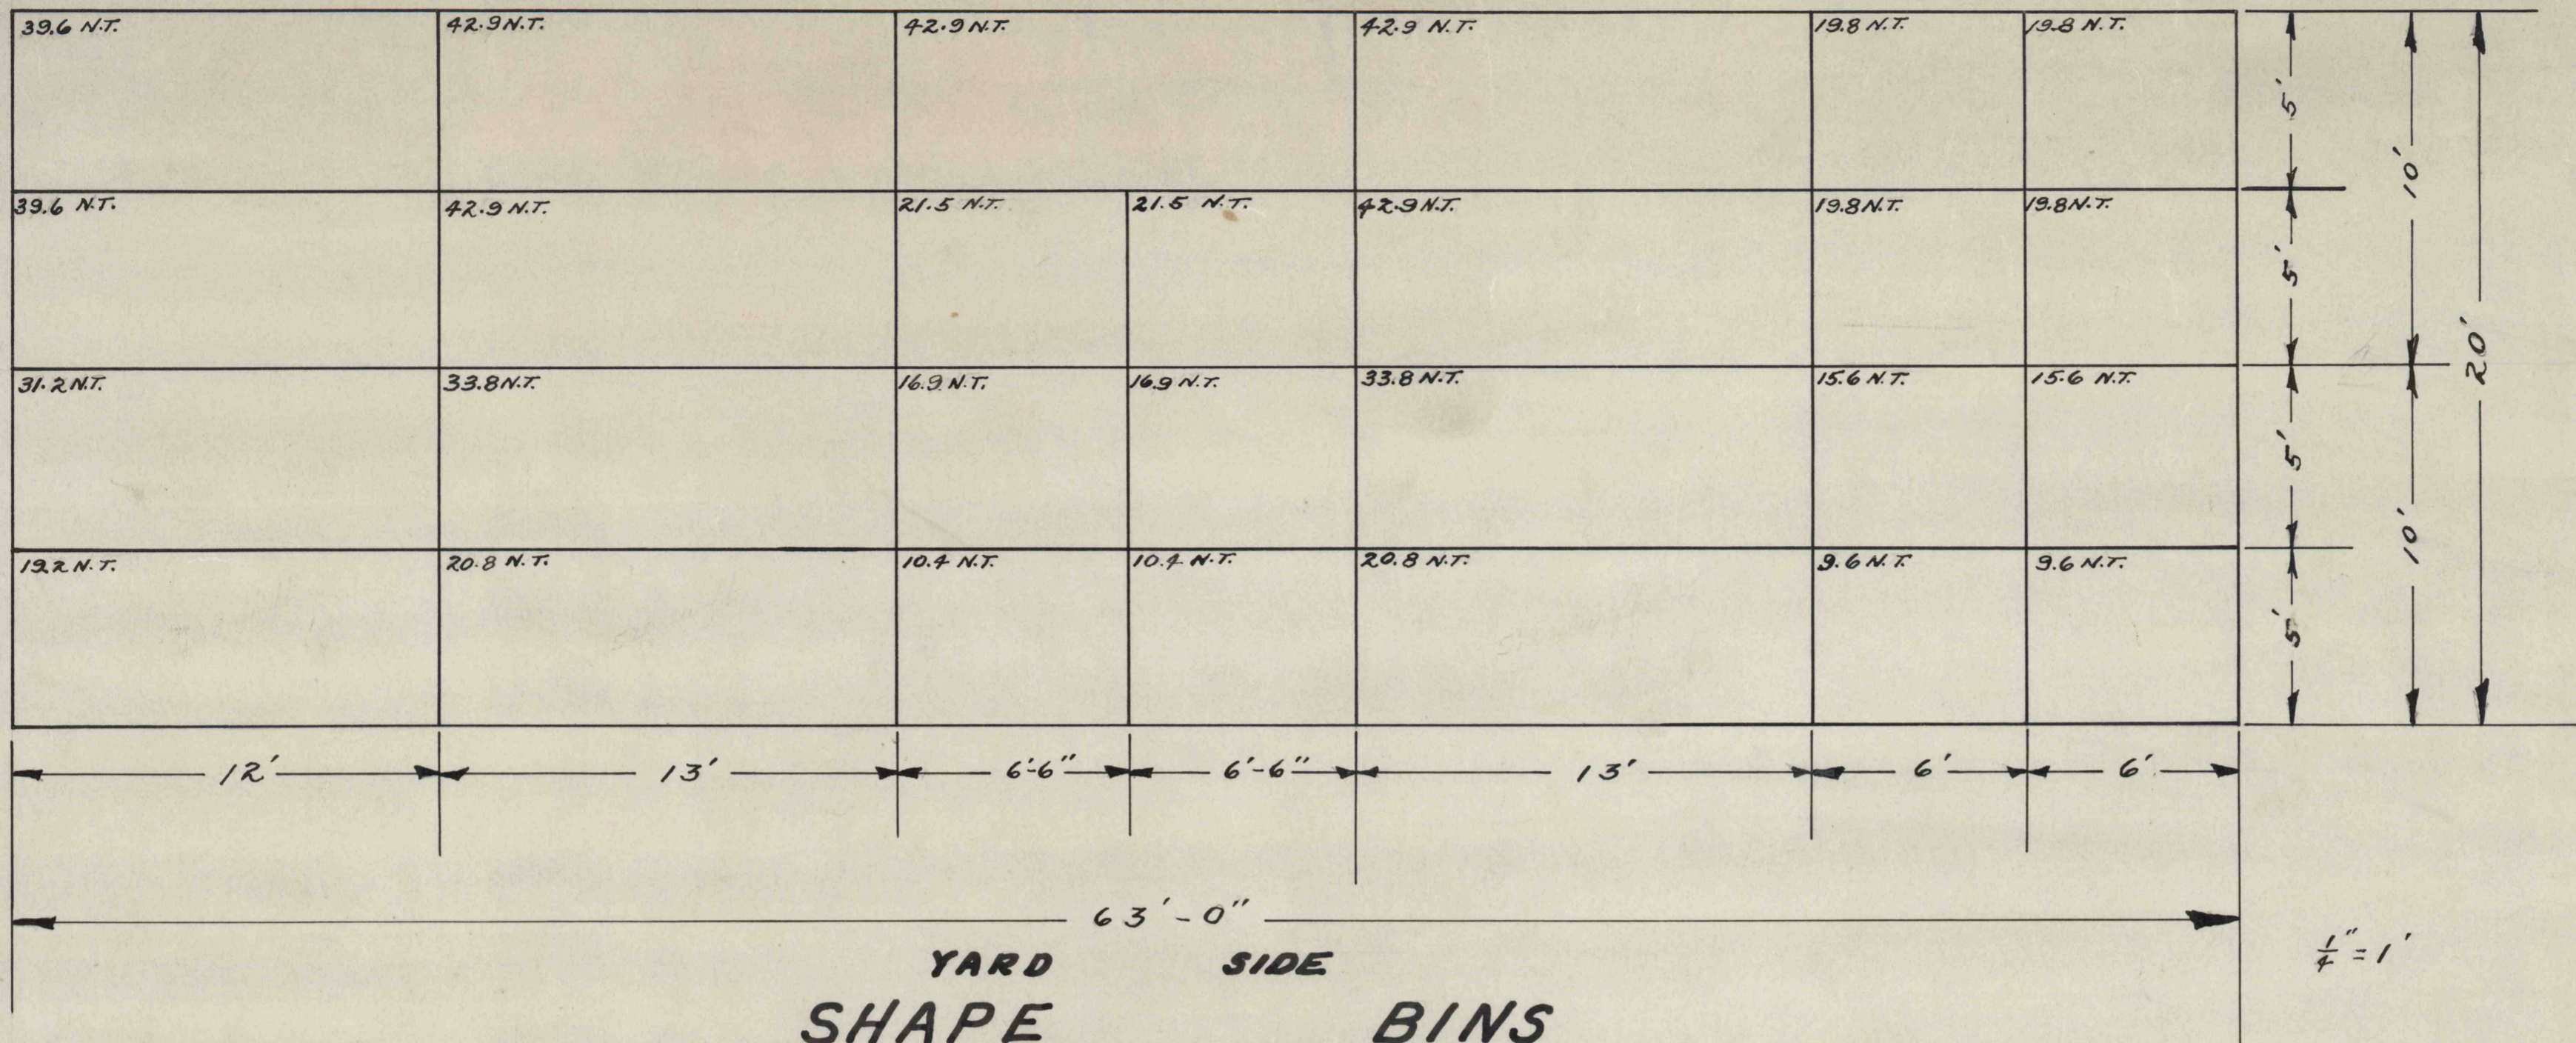 39.6 N.T. 42.9 N.T. 42.9 N.T. 42.9 N.T. 19.8 N.T. 19.8 N.T.
5'
39.6 N.T. 42.9 N.T. 21.5 N.T. 21.5 N.T. 42.9 N.T. 19.8 N.T. 19.8 N.T.
10'
5'
20'
31.2 N.T. 33.8 N.T. 16.9 N.T. 16.9 N.T. 33.8 N.T. 15.6 N.T. 15.6 N.T.
5'
10'
19.2 N.T. 20.8 N.T. 10.4 N.T. 10.4 N.T. 20.8 N.T. 9.6 N.T. 9.6 N.T.
5'
12' 13' 6'-6" 6'-6" 13' 6' 6'
63'-0"
YARD SIDE
1/4" = 1'
SHAPE BINS